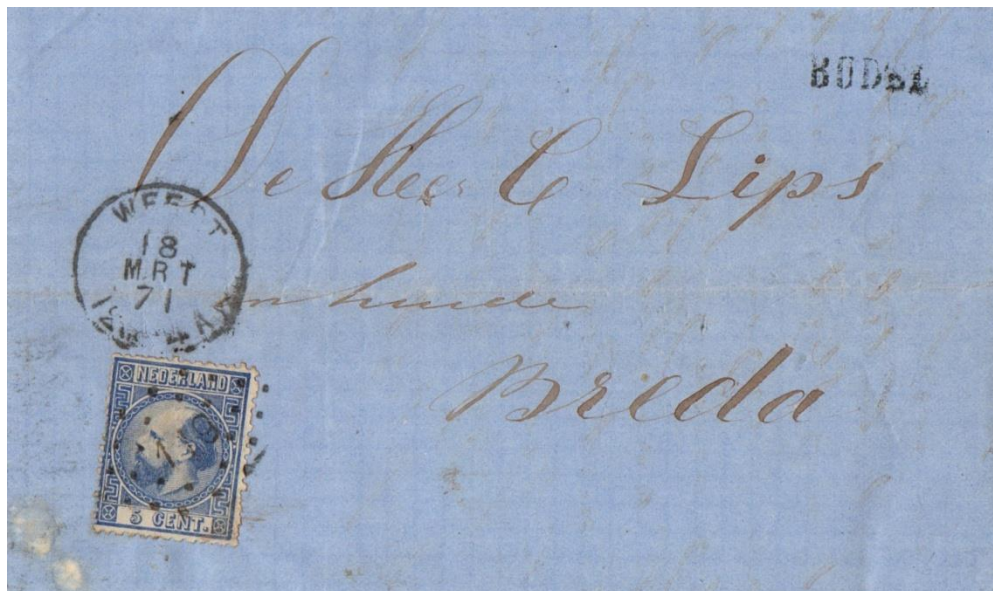 BUDEL
De Heer C Lips
WEERT
18
MRT
71
in hunde
Breda
NEDERLAND
5 CENT.